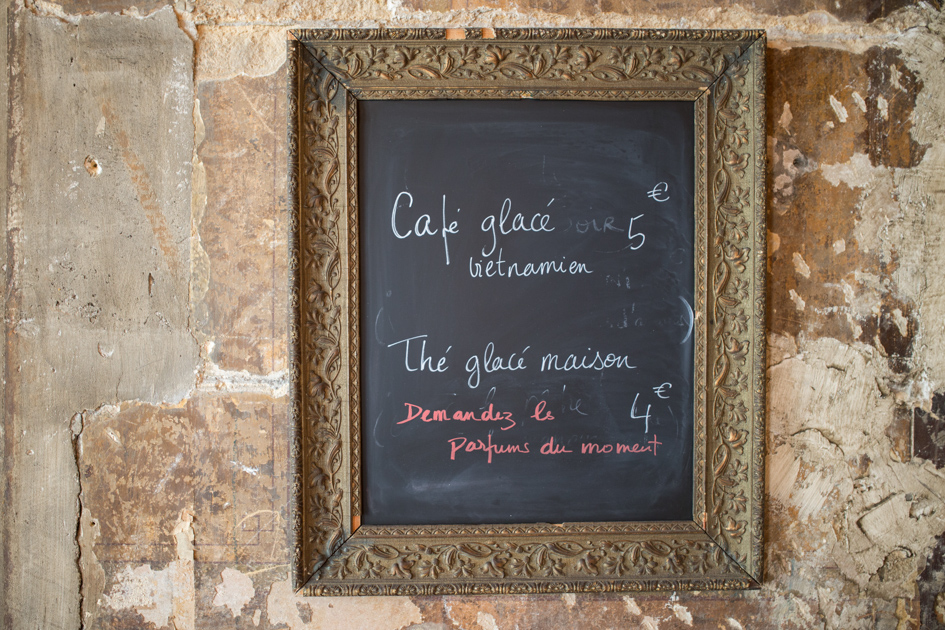 Café glacé 5€
vietnamien
Thé glacé maison
Demandez les 4€
parfums du moment